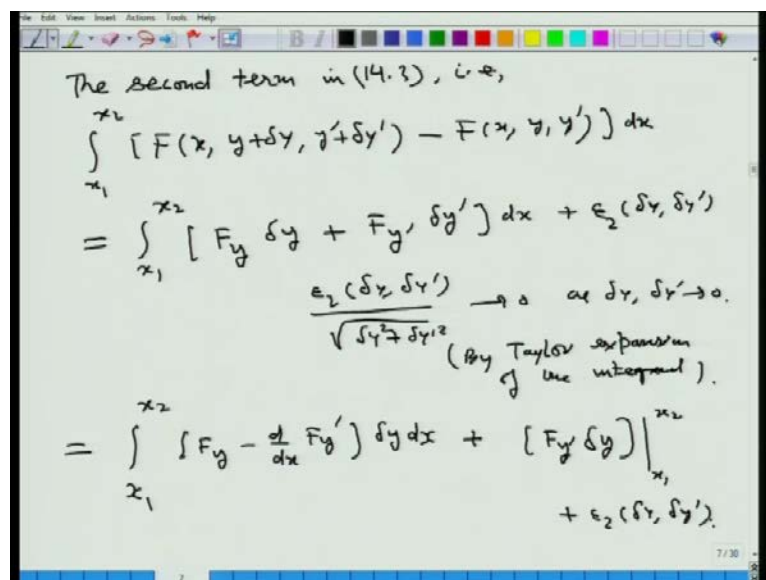 File Edit View Insert Actions Tools Help
The second term in (14.3), i.e,
∫_{x₁}^{x₂} [F(x, y+δy, y′+δy′) − F(x, y, y′)] dx
= ∫_{x₁}^{x₂} [F_y δy + F_y′ δy′] dx + ε₂(δy, δy′)
ε₂(δy, δy′) / √(δy²+δy′²) → 0 as δy, δy′→0.
(By Taylor expansion
of the integrand).
= ∫_{x₁}^{x₂} [F_y − d/dx F_y′] δy dx + [F_y′ δy]|_{x₁}^{x₂}
+ ε₂(δy, δy′).
7/30